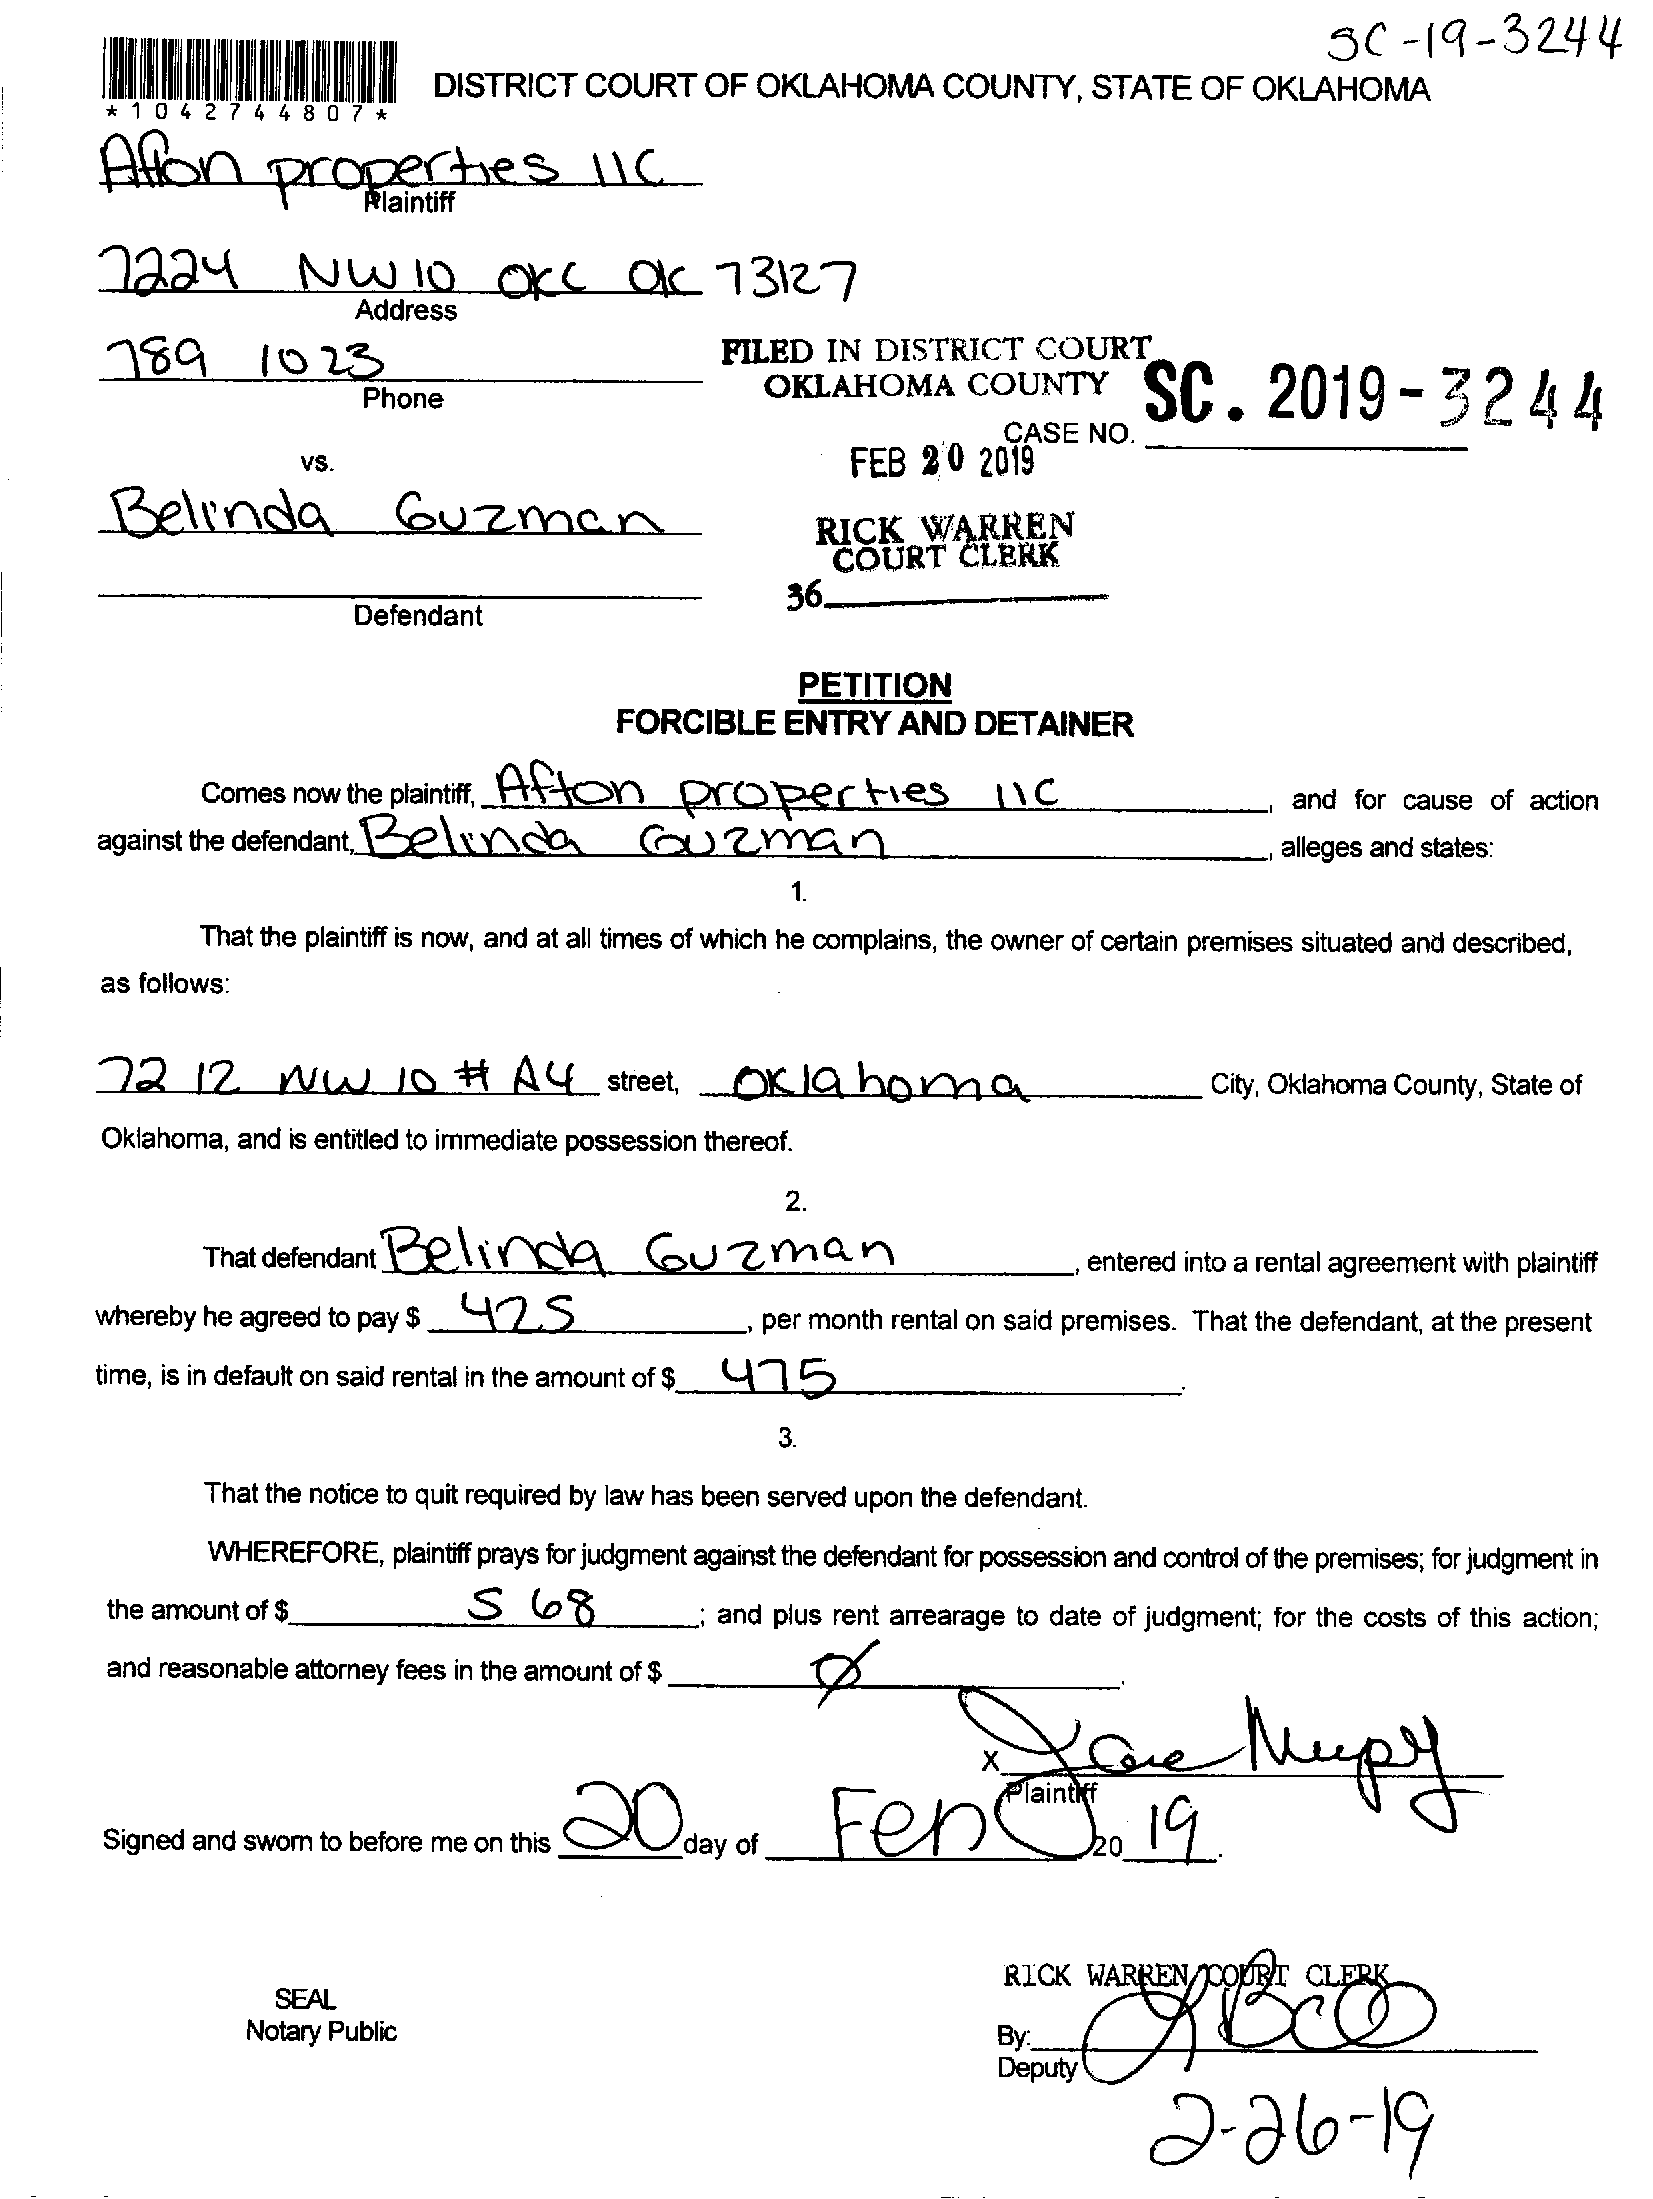 SC-19-3244
*1042744807*
DISTRICT COURT OF OKLAHOMA COUNTY, STATE OF OKLAHOMA
Afton properties llC
Plaintiff
7224 NW 10 OKC OK 73127
Address
789 1023
Phone
FILED IN DISTRICT COURT
OKLAHOMA COUNTY
SC. 2019-3244
CASE NO.
FEB 20 2019
vs.
Belinda Guzman
RICK WARREN
COURT CLERK
36
Defendant
PETITION
FORCIBLE ENTRY AND DETAINER
Comes now the plaintiff, Afton properties llC, and for cause of action
against the defendant, Belinda Guzman, alleges and states:
1.
That the plaintiff is now, and at all times of which he complains, the owner of certain premises situated and described,
as follows:
7212 NW 10 # A4 street, Oklahoma City, Oklahoma County, State of
Oklahoma, and is entitled to immediate possession thereof.
2.
That defendant Belinda Guzman, entered into a rental agreement with plaintiff
whereby he agreed to pay $ 425, per month rental on said premises. That the defendant, at the present
time, is in default on said rental in the amount of $ 475.
3.
That the notice to quit required by law has been served upon the defendant.
WHEREFORE, plaintiff prays for judgment against the defendant for possession and control of the premises; for judgment in
the amount of $ 568; and plus rent arrearage to date of judgment; for the costs of this action;
and reasonable attorney fees in the amount of $ Ø.
X
Plaintiff
Signed and sworn to before me on this 20 day of Feb 2019.
RICK WARREN COURT CLERK
SEAL
Notary Public
By:
Deputy
2-26-19